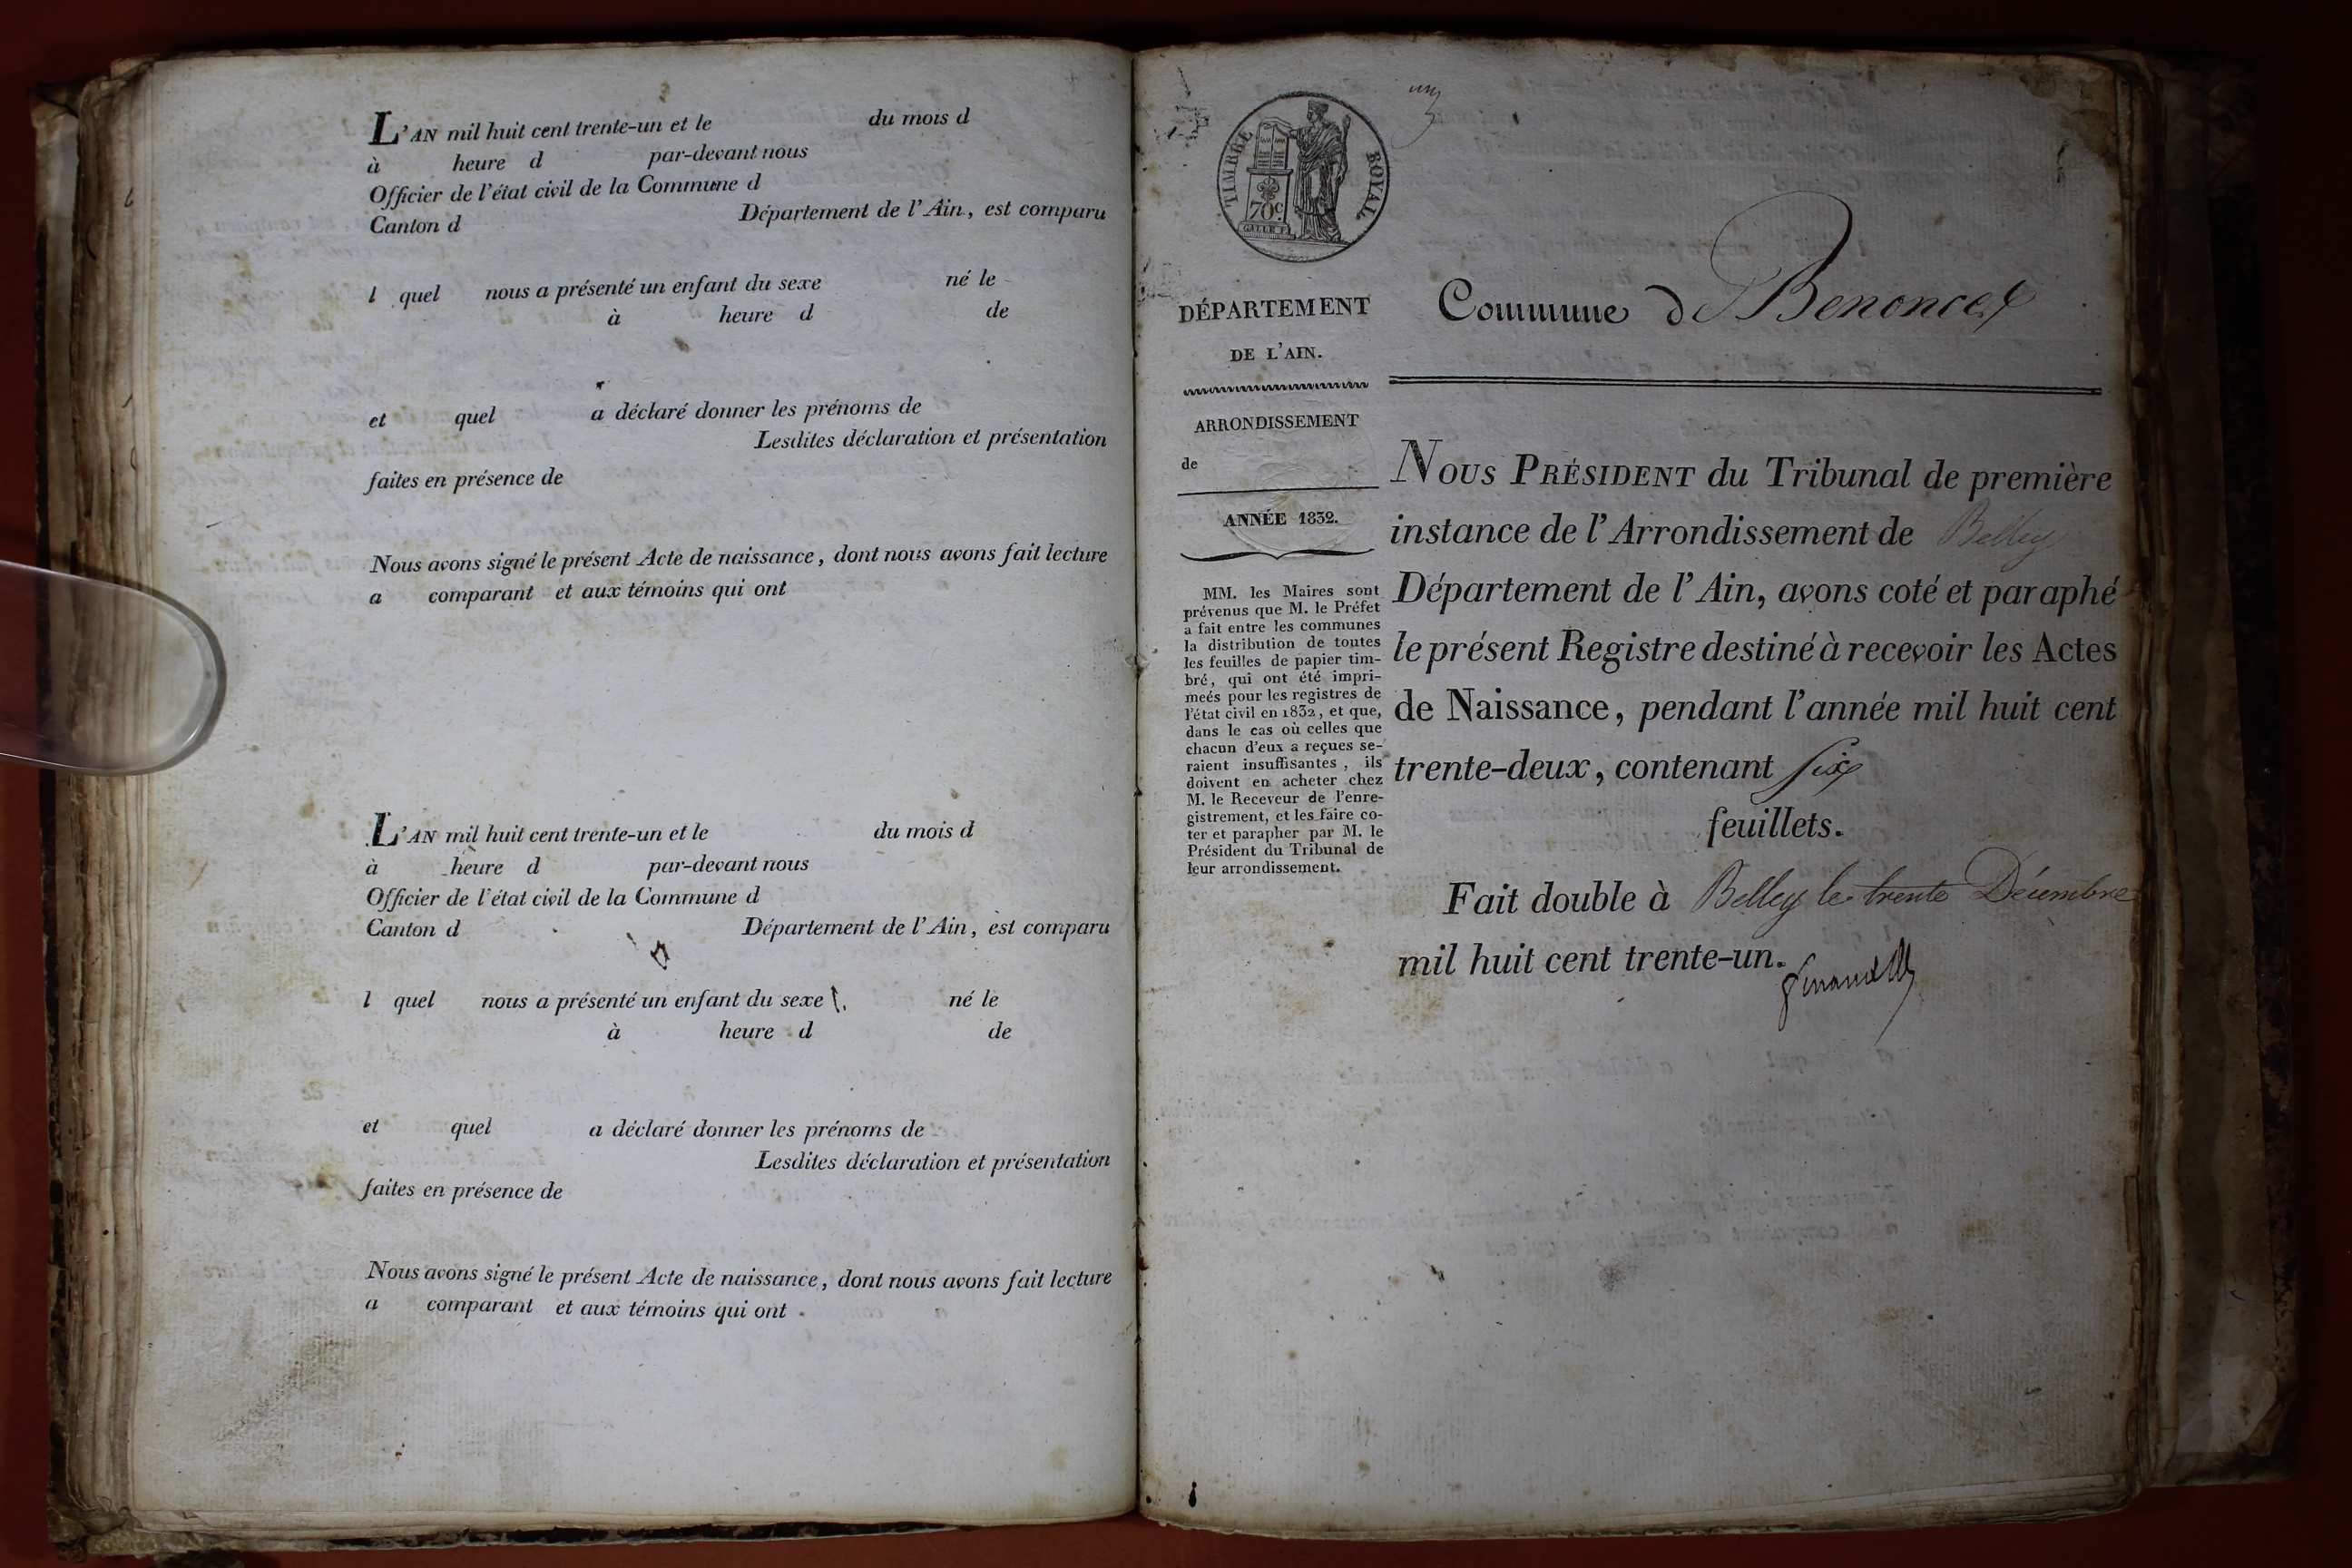 L'AN mil huit cent trente-un et le du mois d
à heure d par-devant nous
Officier de l'état civil de la Commune d
Canton d Département de l'Ain, est comparu
l quel nous a présenté un enfant du sexe né le
à heure d de
et quel a déclaré donner les prénoms de
Lesdites déclaration et présentation
faites en présence de
Nous avons signé le présent Acte de naissance, dont nous avons fait lecture
a comparant et aux témoins qui ont
L'AN mil huit cent trente-un et le du mois d
à heure d par-devant nous
Officier de l'état civil de la Commune d
Canton d Département de l'Ain, est comparu
l quel nous a présenté un enfant du sexe né le
à heure d de
et quel a déclaré donner les prénoms de
Lesdites déclaration et présentation
faites en présence de
Nous avons signé le présent Acte de naissance, dont nous avons fait lecture
a comparant et aux témoins qui ont
TIMBRE ROYAL
70c
DÉPARTEMENT
DE L'AIN.
ARRONDISSEMENT
de
ANNÉE 1832.
MM. les Maires sont
prévenus que M. le Préfet
a fait entre les communes
la distribution de toutes
les feuilles de papier tim-
bré, qui ont été impri-
meés pour les registres de
l'état civil en 1832, et que,
dans le cas où celles que
chacun d'eux a reçues se-
raient insuffisantes, ils
doivent en acheter chez
M. le Receveur de l'enre-
gistrement, et les faire co-
ter et parapher par M. le
Président du Tribunal de
leur arrondissement.
Commune de Benonces
NOUS PRÉSIDENT du Tribunal de première
instance de l'Arrondissement de Belley
Département de l'Ain, avons coté et paraphé
le présent Registre destiné à recevoir les Actes
de Naissance, pendant l'année mil huit cent
trente-deux, contenant six
feuillets.
Fait double à Belley le trente Décembre
mil huit cent trente-un.